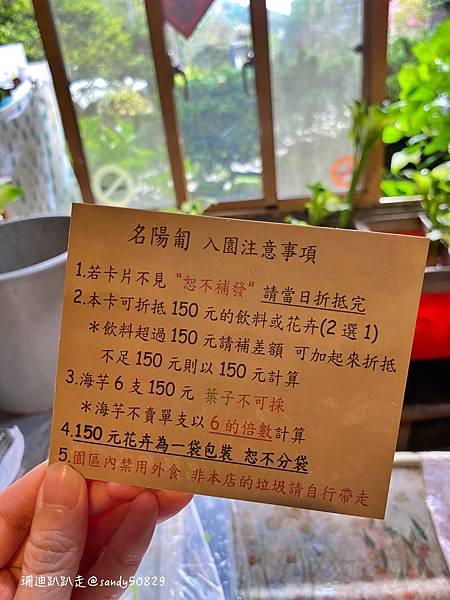 名陽匍 入園注意事項
1.若卡片不見 “恕不補發” 請當日折抵完
2.本卡可折抵 150 元的飲料或花卉(2 選 1)
＊飲料超過 150 元請補差額 可加起來折抵
不足 150 元則以 150 元計算
3.海芋 6 支 150 元 葉子不可採
＊海芋不賣單支以 6 的倍數計算
4.150 元花卉為一袋包裝 恕不分袋
5.園區內禁用外食 非本店的垃圾請自行帶走
珊迪趴趴走@sandy50829